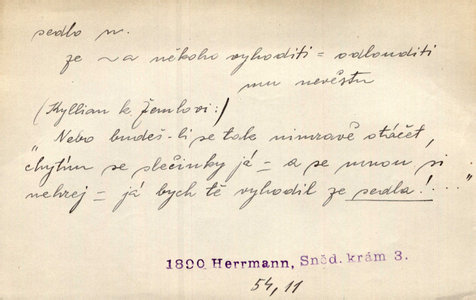 sedlo n.
ze ~a někoho vyhoditi = odlouditi
mu nevěstu
(Kyllian k Žemlovi:)
"Nebo budeš-li se tak nimravě otáčet,
chytím se slečinky já = a se mnou si
nehrej = já bych tě vyhodil ze sedla!...."
1890 Herrmann, Sněd. krám 3.
54, 11